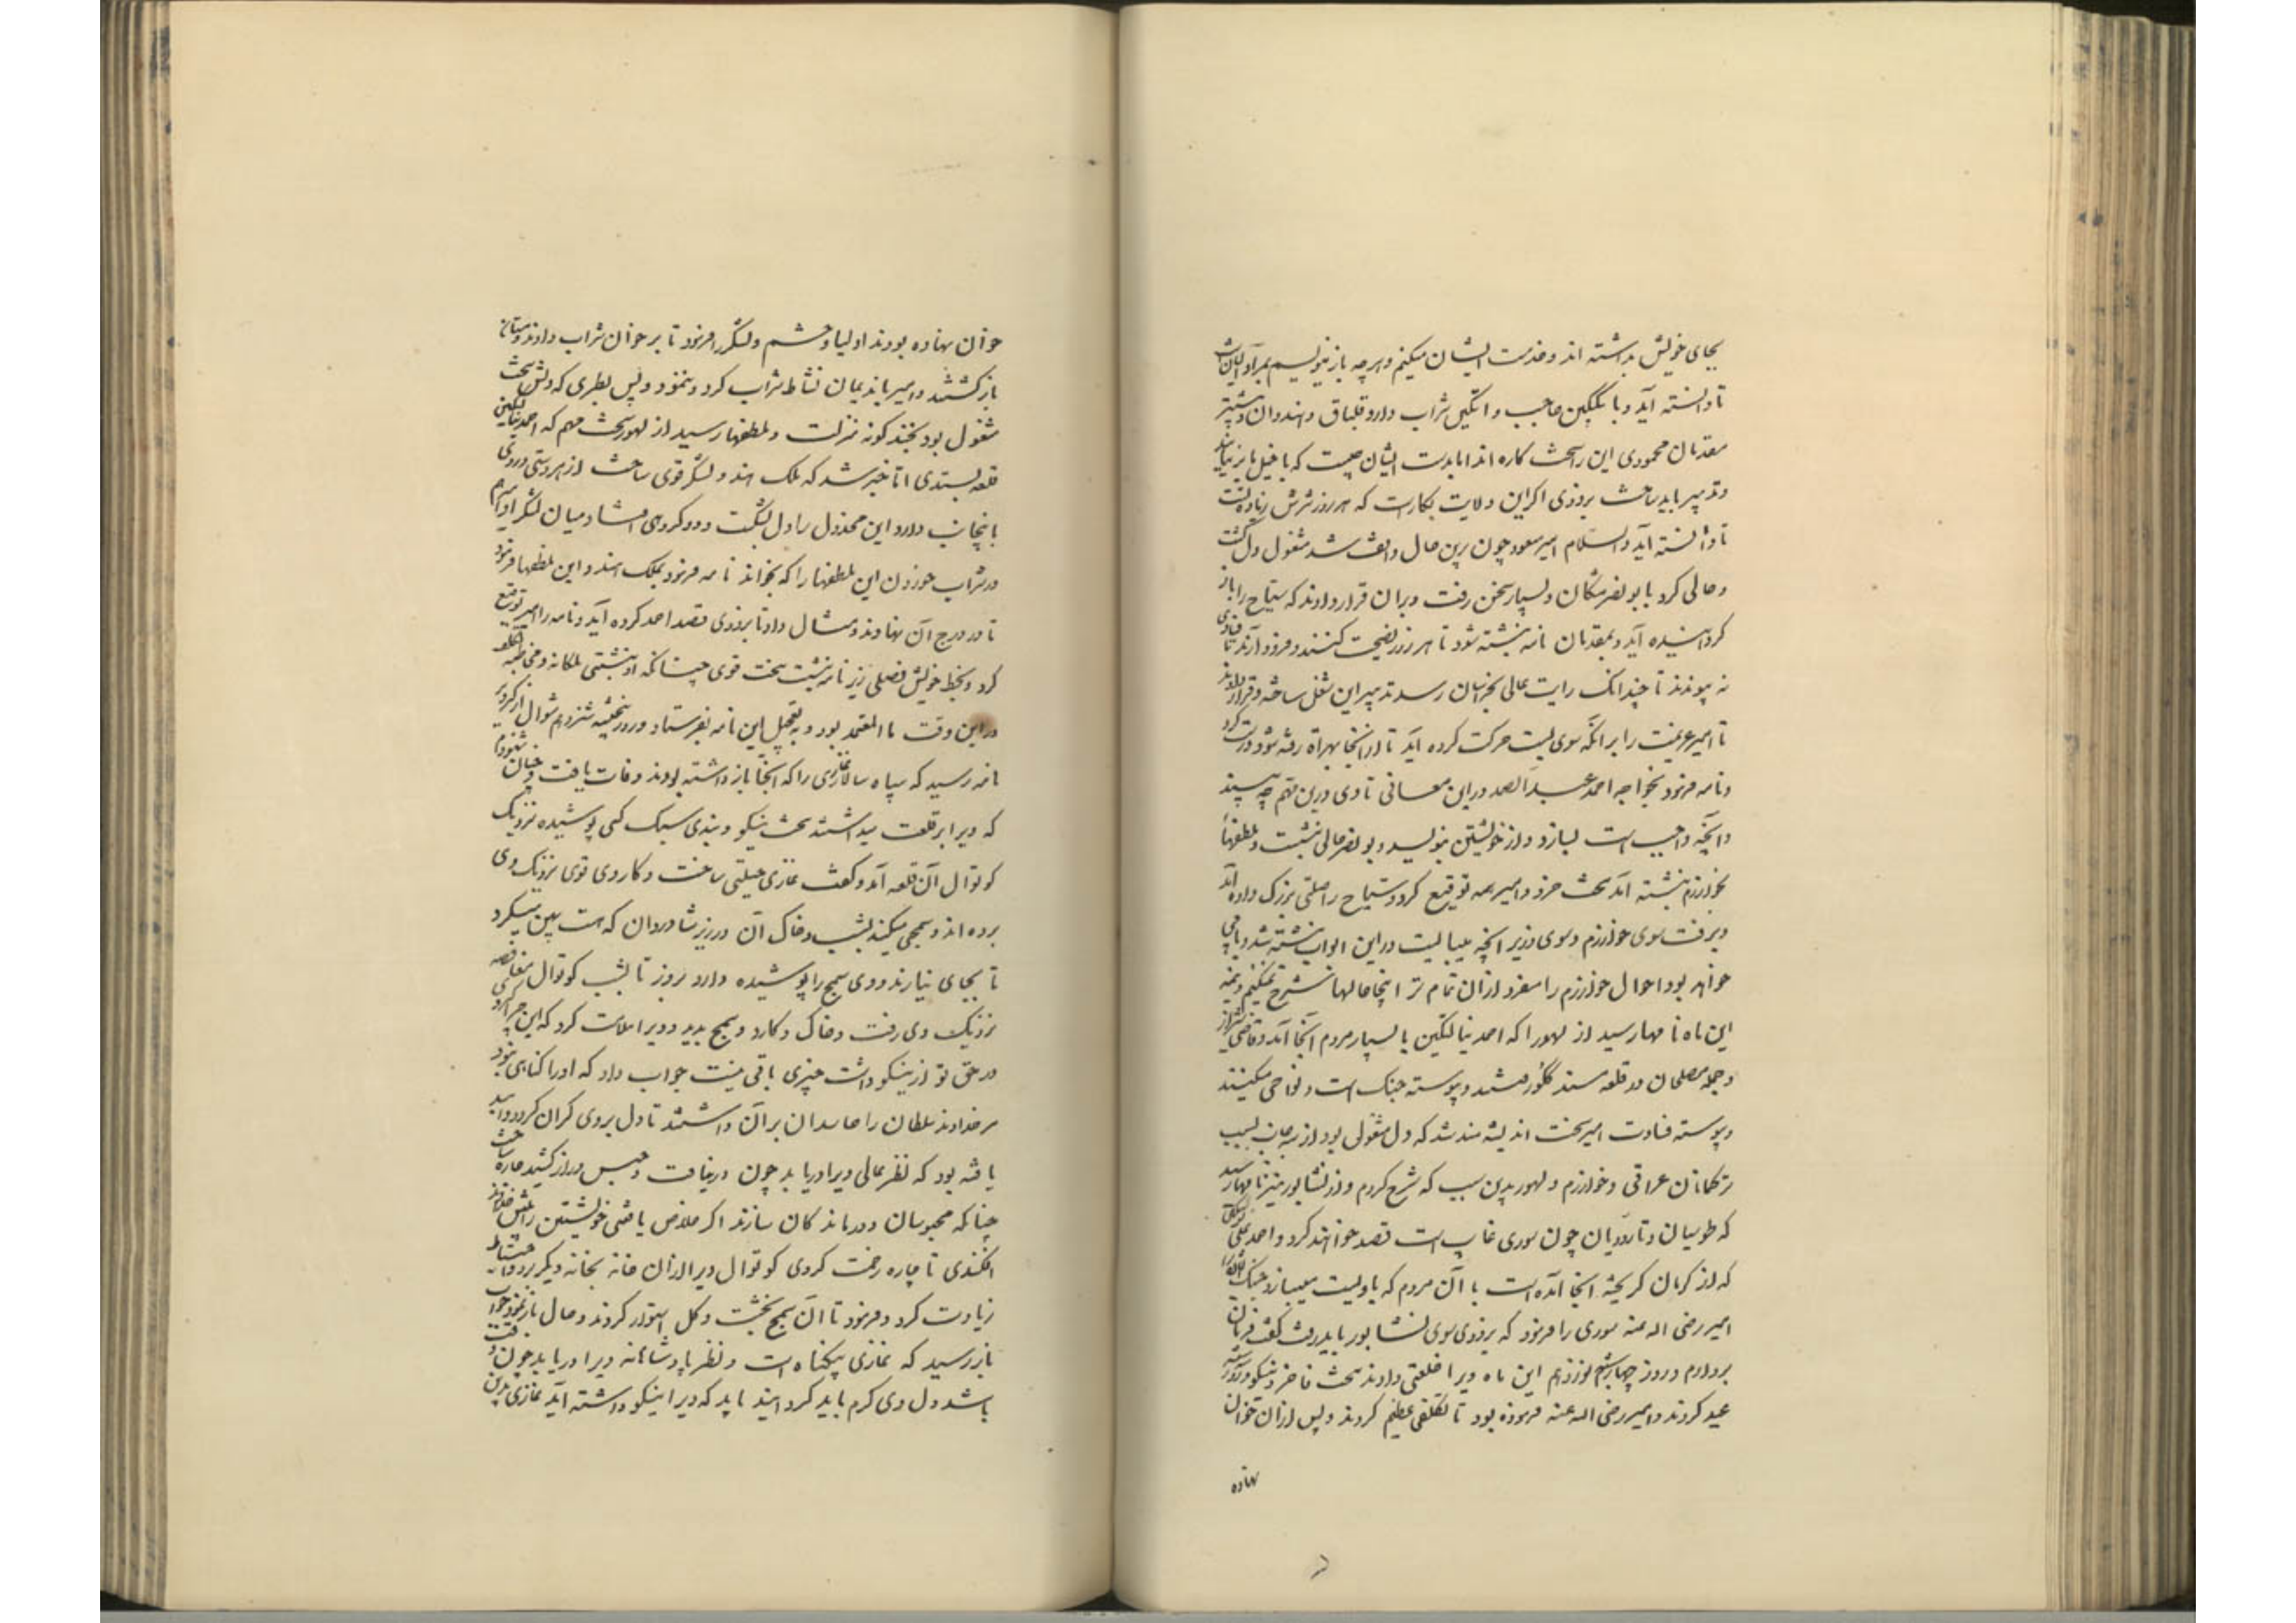 بجای خویش بداشته اند و خدمت ایشان میکنم و هرچه باز مینویسم بمراد ایشان است
تا دانسته آید و با بکتکین حاجب و اتکین شراب دار و قلباق و هندوان و بیشتر
مقدمان محمودی این را سخت کاره اند اما بدست ایشان چیست که با خیل بر نیایند
و تدبیر باید ساخت بزودی اکر این ولایت بکارست که هر روز شرش زیادتست
تا دانسته آید والسلام امیر مسعود چون برین حال واقف شد مشغول دل کشت
و خالی کرد با بو نصر مشکان و بسیار سخن رفت و بران قرار دادند که سیاح را باز
کردانیده آید و بمقدمان نامه نبشته شود تا هر روز نصیحت کنند و فرود آرند تا فسادی
نه پیوندد تا چندانک رایت عالی بخراسان رسد تدبیر این شغل ساخته و قرار دادند
تا امیر عزیمت را بر انکه سوی بست حرکت کرده آید تا از انجا بهراة رفته شود درست کرد
و نامه فرمود بخواجه احمد عبد الصمد در این معانی تا وی درین مهم چه بیند
و آنچه واجبست بسازد و از خویشتن بنویسد و بو نصر خالی بنشست و ملطفها
بخوارزم نبشته آمد سخت خرد و امیر همه توقیع کرد و سیاح را صلتی بزرک داده آمد
و برفت سوی خوارزم و سوی وزیر آنچه میبایست در این ابواب نبشته شد و بابی
خواهد بود احوال خوارزم را مفرد از ان تمام تر اینجا حالها شرح نمیکنم و نیمه
این ماه نامها رسید از لهور که احمد ینالتکین با بسیار مردم آنجا آمد و قاضی شیراز
و جمله مصلحان در قلعه مندککور رفتند و پیوسته جنک است و نواحی میکنند
و پیوسته فسادست امیر سخت اندیشه مند شد که دل مشغولی بود از سه جانب بسبب
ترکمانان عراقی و خوارزم و لهور بدین سبب که شرح کردم و از نشابور نیز نامها رسید
که طوسیان و تارودیان چون سوری غایب است قصد خواهند کرد و احمد علی نوشتکین
که از کرمان کریخته آنجا آمده است با آن مردم که با ویست میسازد جنک ایشان را
امیر رضی الله عنه سوری را فرمود که بزودی سوی نشابور باید رفت کفت فرمان
بردارم و روز چهارشنبه نوزدهم این ماه ویرا خلعتی دادند سخت فاخر و نیکو و روز سه شنبه
عید کردند و امیر رضی الله عنه فرموده بود تا تکلفی عظیم کردند و پس از ان خوان
نهاده
خوان نهاده بودند اولیا و حشم و لشکر را فرمود تا بر خوان شراب دادند و مستان
باز کشتند و امیر با ندیمان نشاط شراب کرد و ننمود و پس بطری که دلش سخت
مشغول بود بچند کونه منزلت و ملطفها رسید از لهور سخت مهم که احمد ینالتکین
قلعه بستدی اما خبر شد که تلک هندو لشکر قوی ساخت از هر دستی و روی
بانجانب دارد این مخذول را دل بشکست و دو کروهی افتاد میان لشکر او امیر هم
در شراب خوردن این ملطفها را که بخواند نامه فرمود بتلک هندو این ملطفها فرمود
تا در درج آن نهادند و مثال داد تا بزودی قصد احمد کرده آید و نامه را امیر توقیع
کرد و بخط خویش فصلی زیر نامه نبشت سخت قوی چنانکه او نبشتی ملکانه و مخاطبه تلک
در این وقت با المعتمد بود و بتعجیل این نامه بفرستاد و روز پنجشنبه شنزدهم شوال از کردیز
نامه رسید که سپاه سالار غازی را که آنجا باز داشته بودند وفات یافت و چنان شنودم
که ویرا بر قلعت میداشتند سخت نیکو و بندی سبک کسی پوشیده نزدیک
کوتوال آن قلعه آمد و کفت غازی حیلتی ساخت و کاردی قوی نزدیک وی
برده اند و سمجی میکند بشب و خاک آن در زیر شادروان که هست پهن میکرد
تا بجای نیارند و وی سمج را پوشیده دارد بروز تا بشب کوتوال مغافصه
نزدیک وی رفت و خاک و کارد و سمج بدید و ویرا ملامت کرد که این چرا کردی
در حق تو از نیکو داشت چیزی باقی نیست جواب داد که او را کناهی نبود
مر خداوند سلطان را حاسدان بر آن داشتند تا دل بروی کران کرد و امید
یافته بود که نظر عالی ویرا دریابد چون در نیافت و حبس دراز کشید چاره ساخت
چنانکه محبوسان و درماند کان سازند اکر خلاص یافتی خویشتن را پیش خداوند
افکندی تا چاره رحمت کردی کوتوال ویرا از ان خانه بخانه دیکر برد و احتیاط
زیادت کرد و فرمود تا آن سمج بخشت و کل استوار کردند و حال باز نمود جواب
باز رسید که غازی بیکناه است و نظر پادشاهانه ویرا دریابد چون وقت
باشد دل وی کرم باید کردانید باید که ویرا نیکو داشته آید غازی بدین